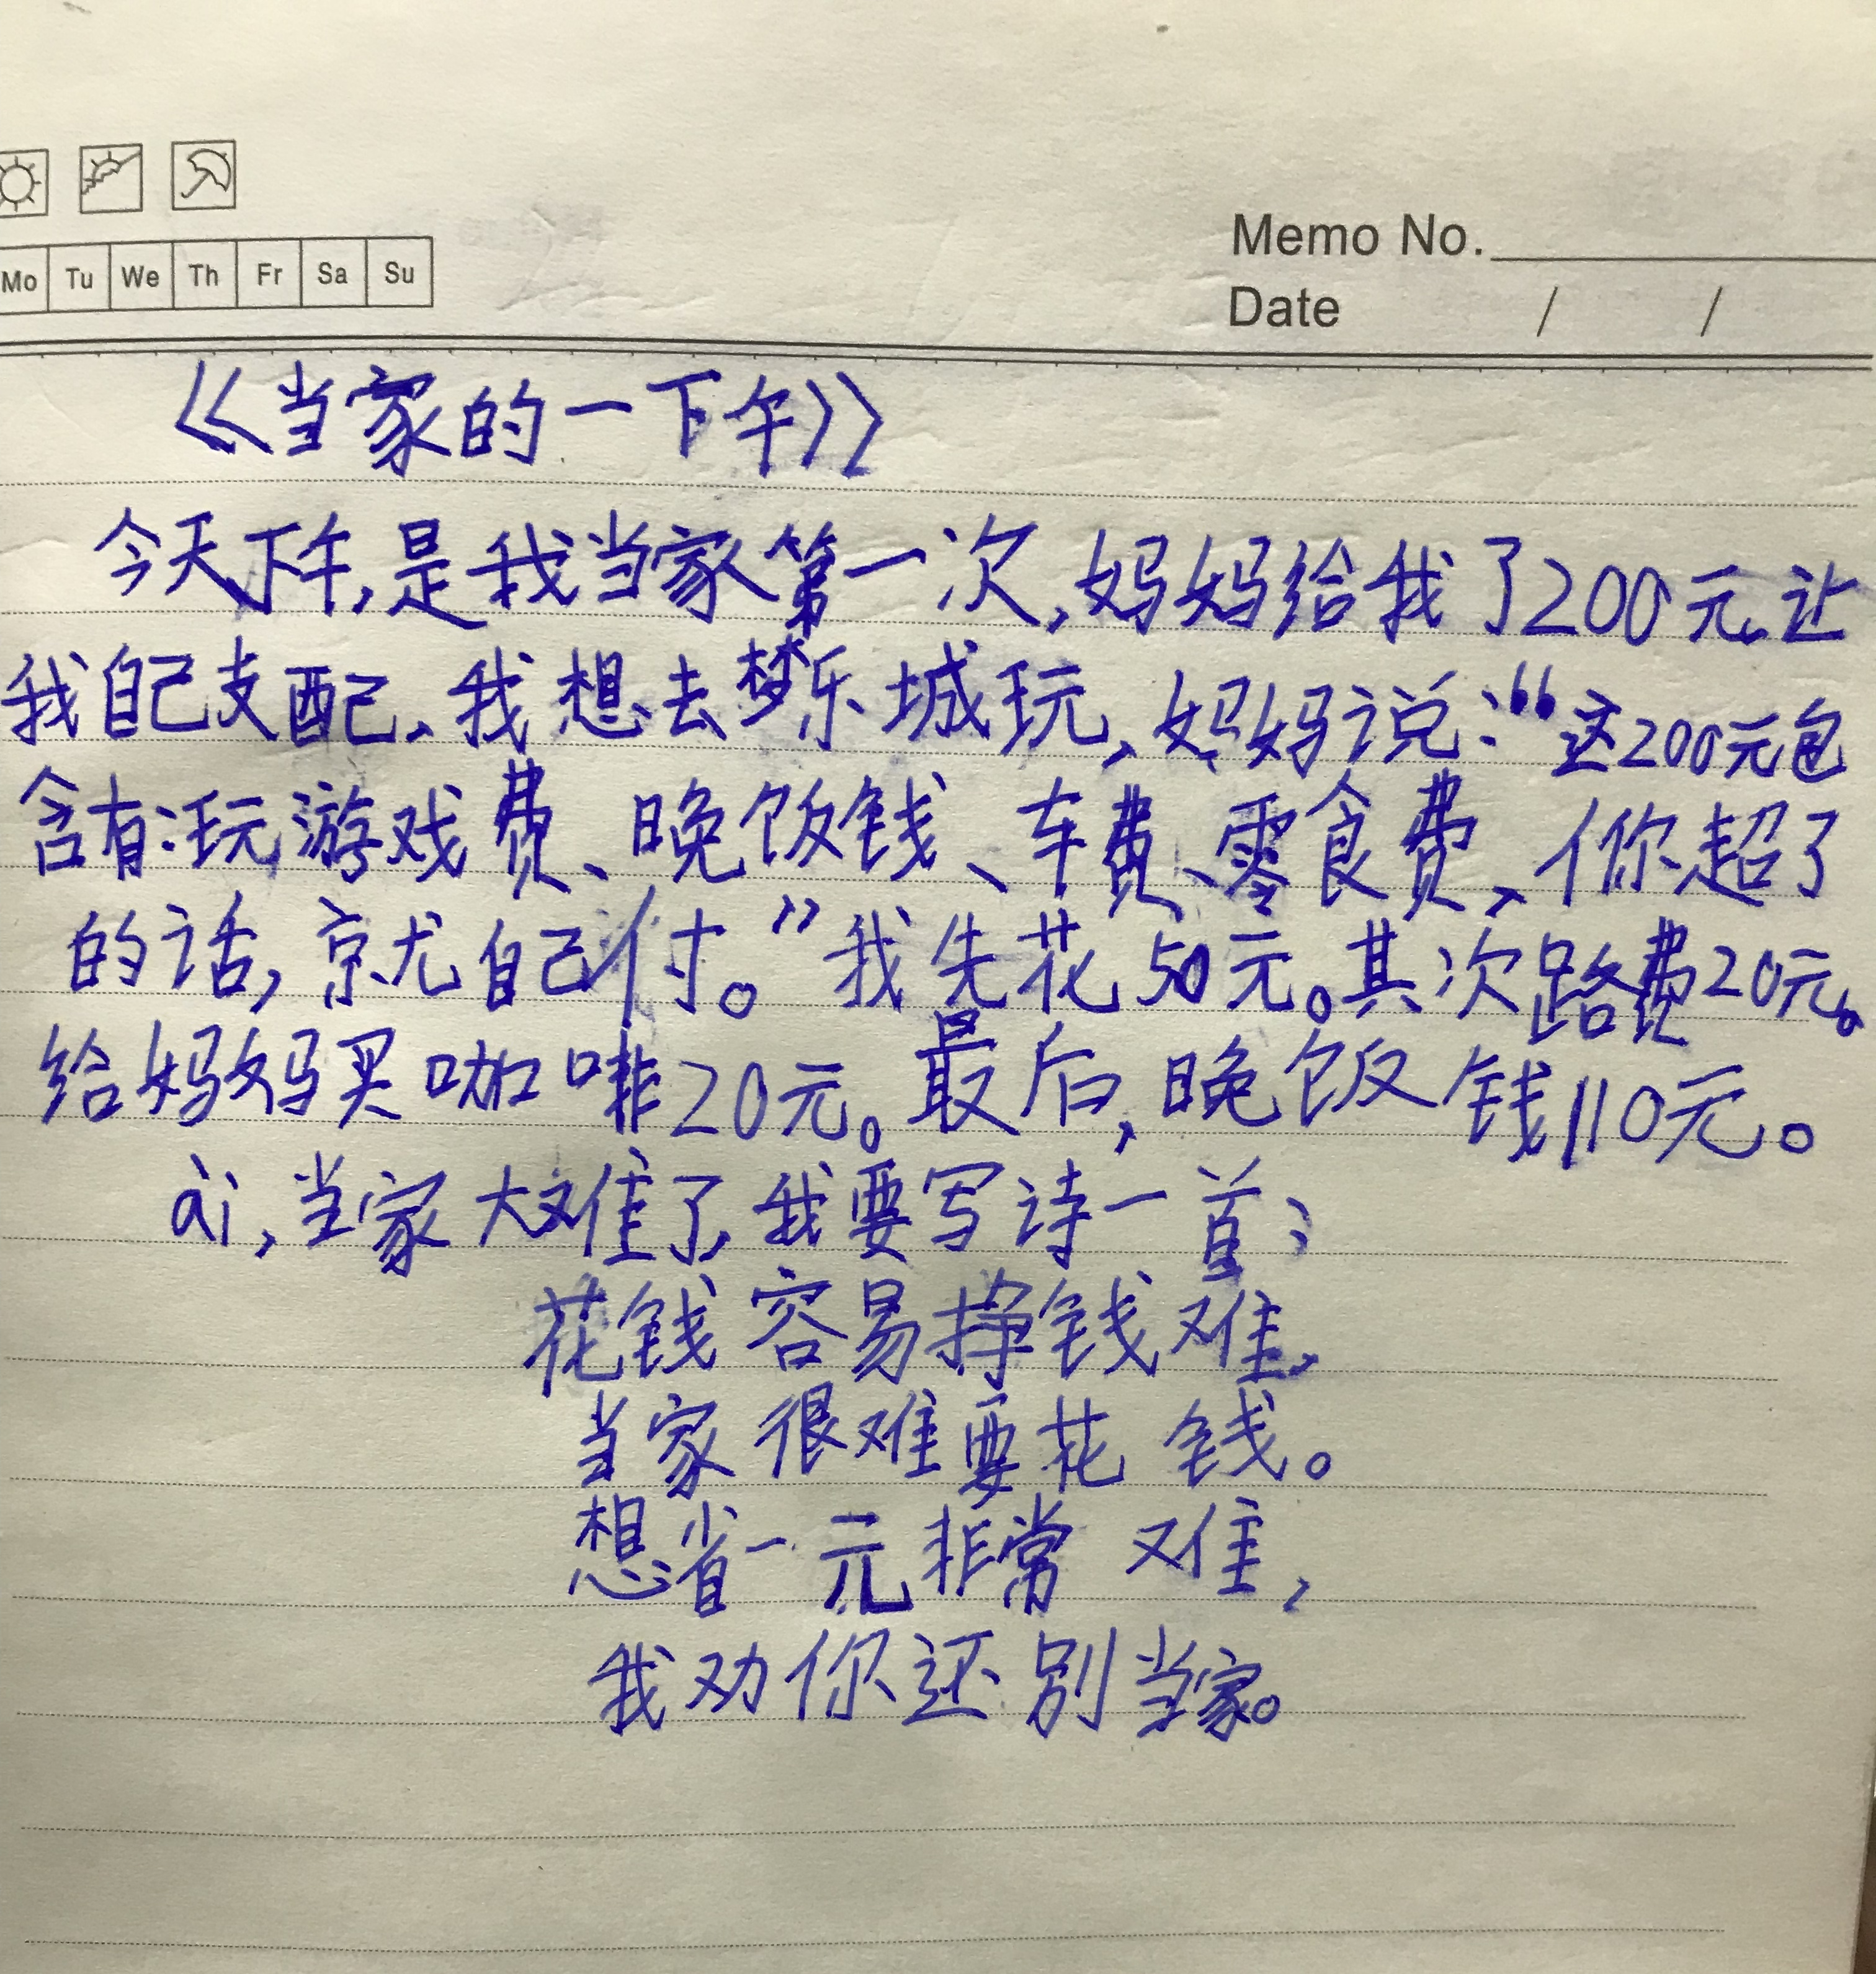 Memo No.
Mo Tu We Th Fr Sa Su
Date / /
《当家的一下午》
今天下午,是我当家第一次,妈妈给我了200元,让
我自己支配、我想去梦乐城玩,妈妈说:“这200元包
含有:玩游戏费、晚饭钱、车费、零食费,你超了
的话,就自己付。”我先花50元。其次路费20元。
给妈妈买咖啡20元。最后,晚饭钱110元。
ài,当家大难了,我要写诗一首:
花钱容易挣钱难,
当家很难要花钱。
想省一元非常难,
我劝你还别当家。